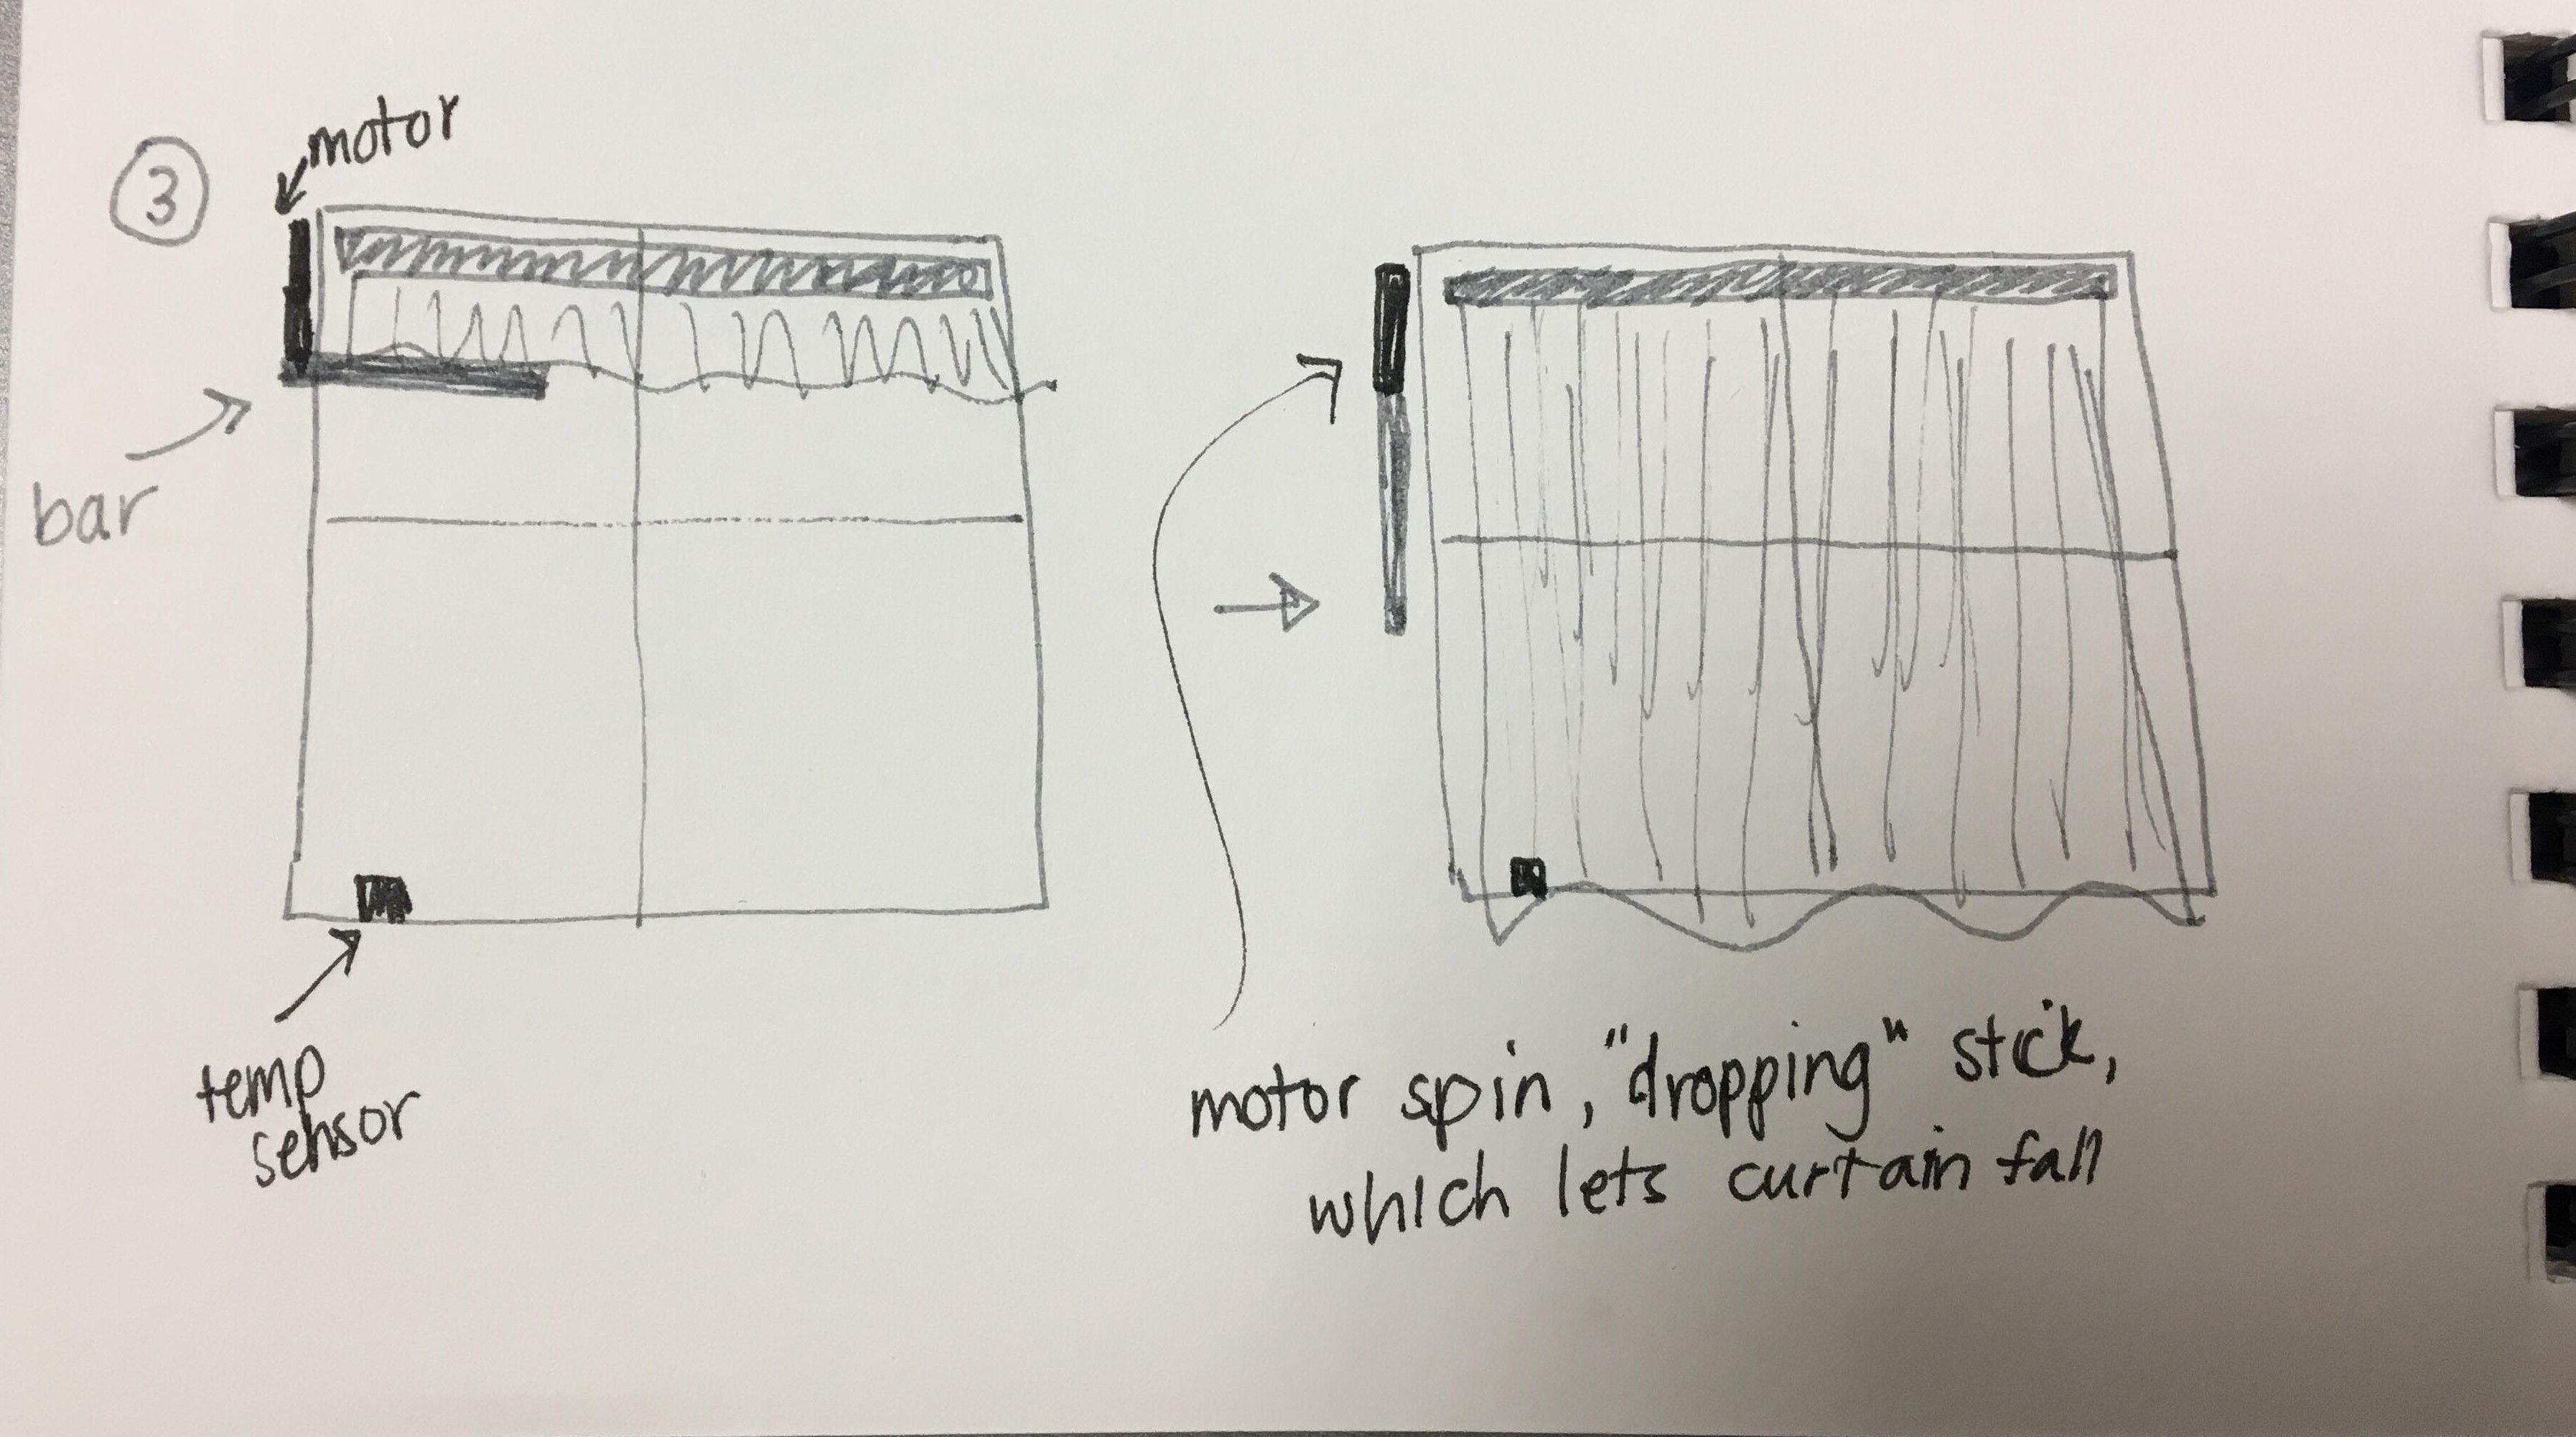 3
motor
bar
temp
sensor
motor spin, "dropping" stick,
which lets curtain fall